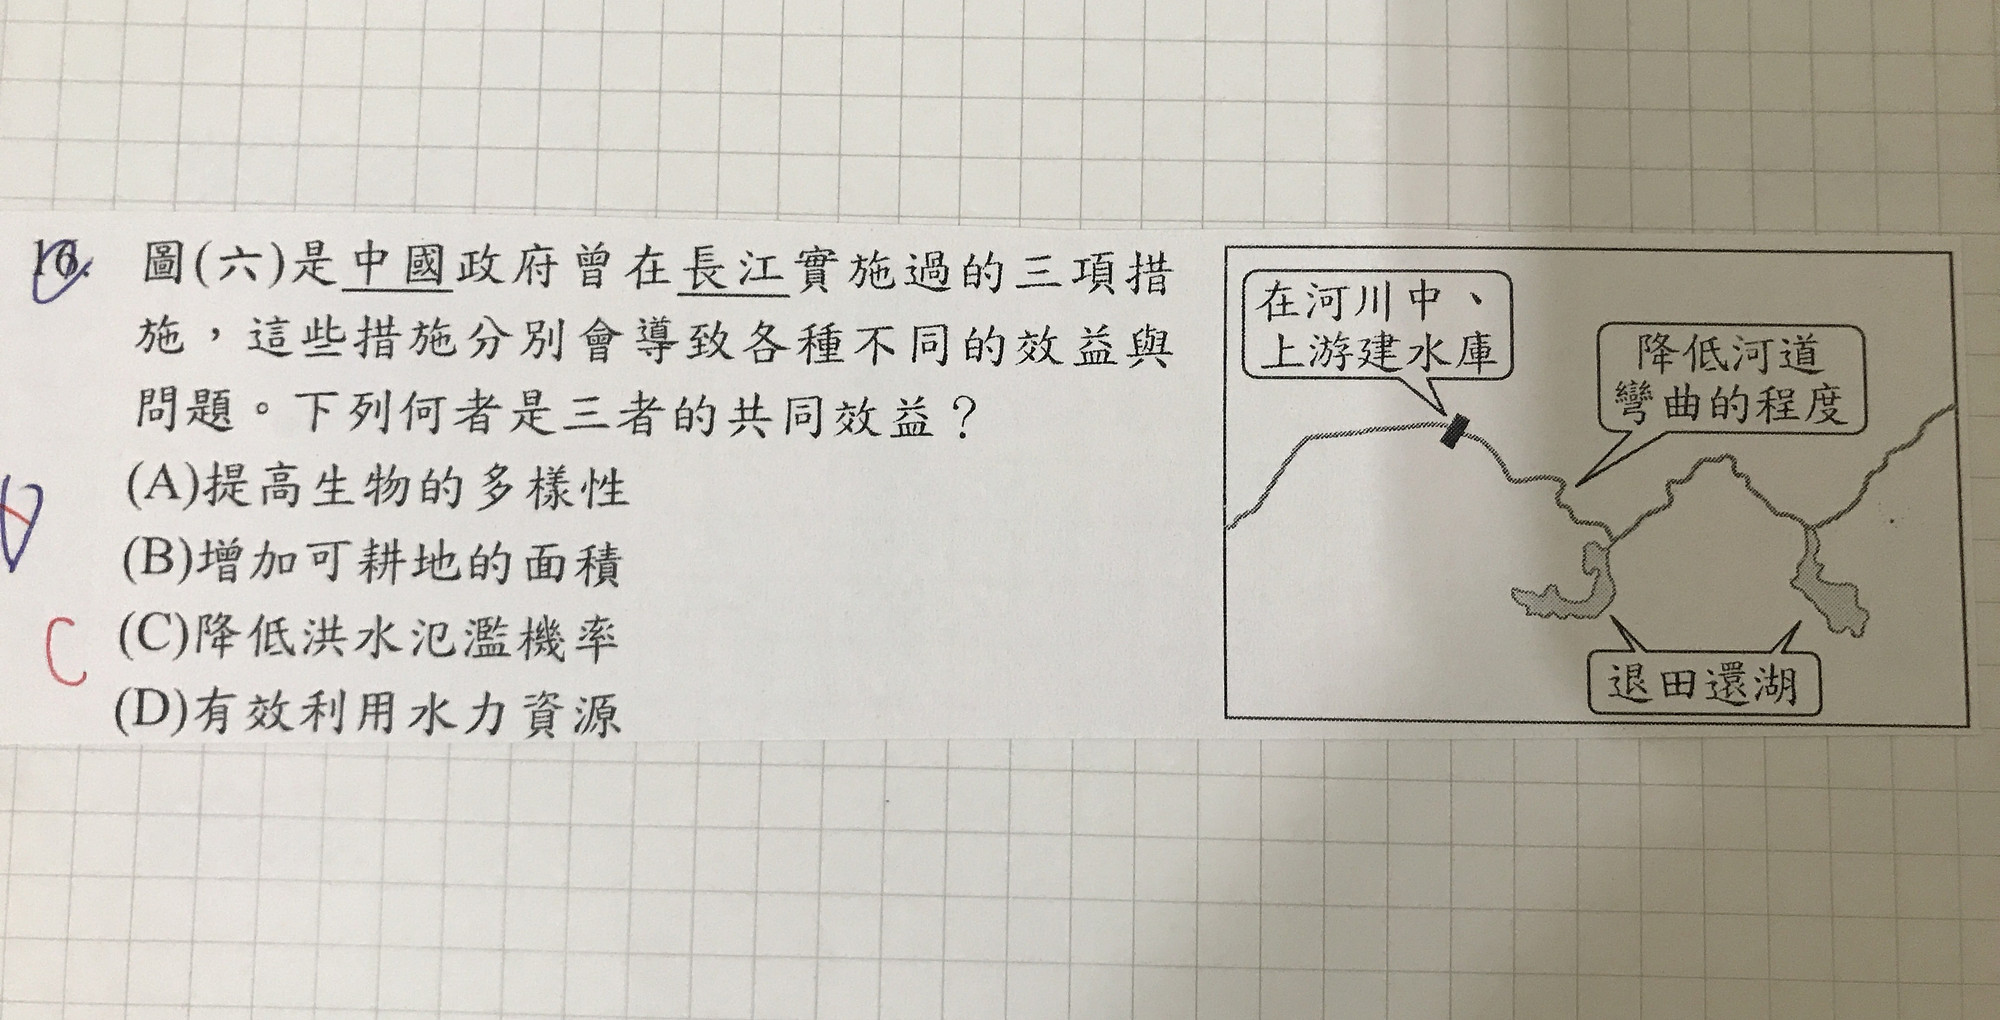 16. 圖(六)是中國政府曾在長江實施過的三項措
施，這些措施分別會導致各種不同的效益與
問題。下列何者是三者的共同效益？
(A)提高生物的多樣性
(B)增加可耕地的面積
C (C)降低洪水氾濫機率
(D)有效利用水力資源
在河川中、
上游建水庫
降低河道
彎曲的程度
退田還湖